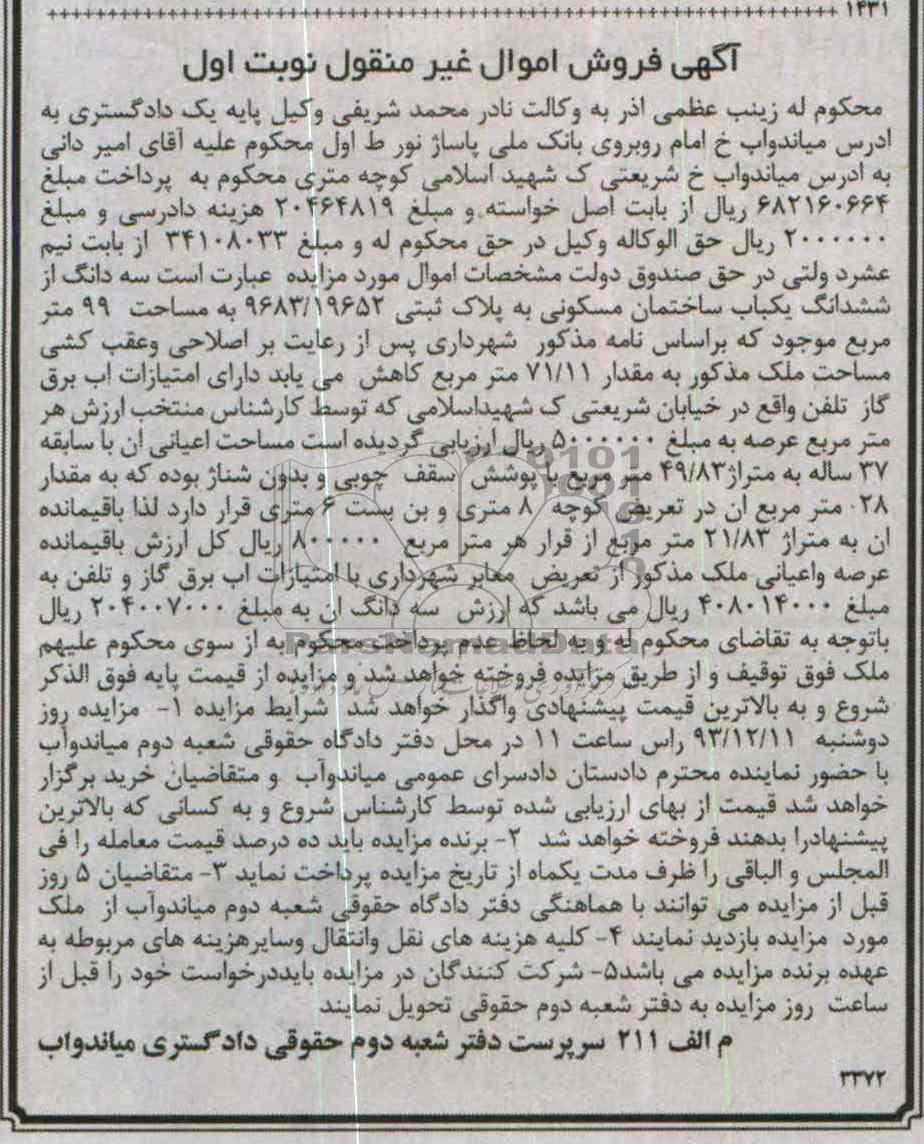 ۱۴۳۱
آگهی فروش اموال غیر منقول نوبت اول
محکوم له زینب عظمی اذر به وکالت نادر محمد شریفی وکیل پایه یک دادگستری به
ادرس میاندواب خ امام روبروی بانک ملی پاساژ نور ط اول محکوم علیه آقای امیر دانی
به ادرس میاندواب خ شریعتی ک شهید اسلامی کوچه متری محکوم به پرداخت مبلغ
۶۸۲۱۶۰۶۶۴ ریال از بابت اصل خواسته و مبلغ ۲۰۴۶۴۸۱۹ هزینه دادرسی و مبلغ
۲۰۰۰۰۰۰ ریال حق الوکاله وکیل در حق محکوم له و مبلغ ۳۴۱۰۸۰۳۳ از بابت نیم
عشرد ولتی در حق صندوق دولت مشخصات اموال مورد مزایده عبارت است سه دانگ از
ششدانگ یکباب ساختمان مسکونی به پلاک ثبتی ۹۶۸۳/۱۹۶۵۲ به مساحت ۹۹ متر
مربع موجود که براساس نامه مذکور شهرداری پس از رعایت بر اصلاحی وعقب کشی
مساحت ملک مذکور به مقدار ۷۱/۱۱ متر مربع کاهش می یابد دارای امتیازات اب برق
گاز تلفن واقع در خیابان شریعتی ک شهیداسلامی که توسط کارشناس منتخب ارزش هر
متر مربع عرصه به مبلغ ۵۰۰۰۰۰۰ ریال ارزیابی گردیده است مساحت اعیانی ان با سابقه
۳۷ ساله به متراژ۴۹/۸۳ متر مربع با پوشش سقف چوبی و بدون شناژ بوده که به مقدار
۲۸ متر مربع ان در تعریض کوچه ۸ متری و بن بست ۶ متری قرار دارد لذا باقیمانده
ان به متراژ ۲۱/۸۳ متر مربع از قرار هر متر مربع ۸۰۰۰۰۰ ریال کل ارزش باقیمانده
عرصه واعیانی ملک مذکور از تعریض معابر شهرداری با امتیازات اب برق گاز و تلفن به
مبلغ ۴۰۸۰۱۴۰۰۰ ریال می باشد که ارزش سه دانگ ان به مبلغ ۲۰۴۰۰۷۰۰۰ ریال
باتوجه به تقاضای محکوم له وبه لحاظ عدم پرداخت محکوم به از سوی محکوم علیهم
ملک فوق توقیف و از طریق مزایده فروخته خواهد شد و مزایده از قیمت پایه فوق الذکر
شروع و به بالاترین قیمت پیشنهادی واگذار خواهد شد شرایط مزایده ۱- مزایده روز
دوشنبه ۹۳/۱۲/۱۱ راس ساعت ۱۱ در محل دفتر دادگاه حقوقی شعبه دوم میاندوآب
با حضور نماینده محترم دادستان دادسرای عمومی میاندوآب و متقاضیان خرید برگزار
خواهد شد قیمت از بهای ارزیابی شده توسط کارشناس شروع و به کسانی که بالاترین
پیشنهادرا بدهند فروخته خواهد شد ۲- برنده مزایده باید ده درصد قیمت معامله را فی
المجلس و الباقی را ظرف مدت یکماه از تاریخ مزایده پرداخت نماید ۳- متقاضیان ۵ روز
قبل از مزایده می توانند با هماهنگی دفتر دادگاه حقوقی شعبه دوم میاندوآب از ملک
مورد مزایده بازدید نمایند ۴- کلیه هزینه های نقل وانتقال وسایرهزینه های مربوطه به
عهده برنده مزایده می باشد۵- شرکت کنندگان در مزایده بایددرخواست خود را قبل از
ساعت روز مزایده به دفتر شعبه دوم حقوقی تحویل نمایند
م الف ۲۱۱ سرپرست دفتر شعبه دوم حقوقی دادگستری میاندواب
۳۳۷۲
ParsNamadData